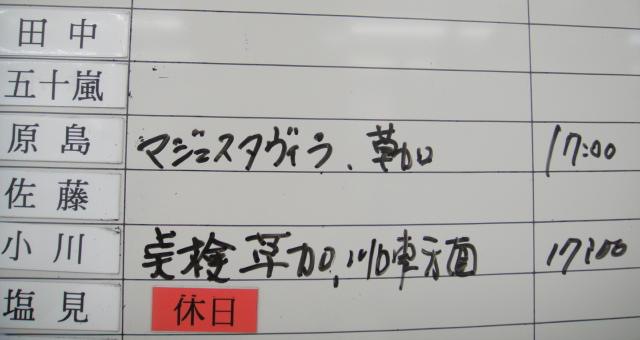 田中
五十嵐
原島 マジェスタヴィラ、草加 17:00
佐藤
小川 点検 草加, 川口東方面 17:00
塩見 休日